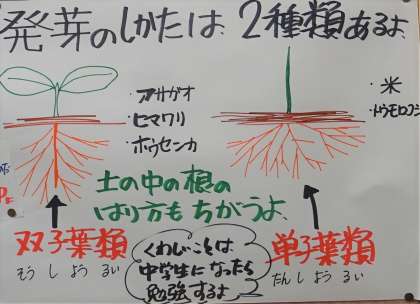 発芽のしかたは、2種類あるよ
・アサガオ
・ヒマワリ
・ホウセンカ
・米
・トウモロコシ
土の中の根の
はり方もちがうよ、
双子葉類
そう し よう るい
くわしいことは
中学生になったら
勉強するよ
単子葉類
たん し よう るい